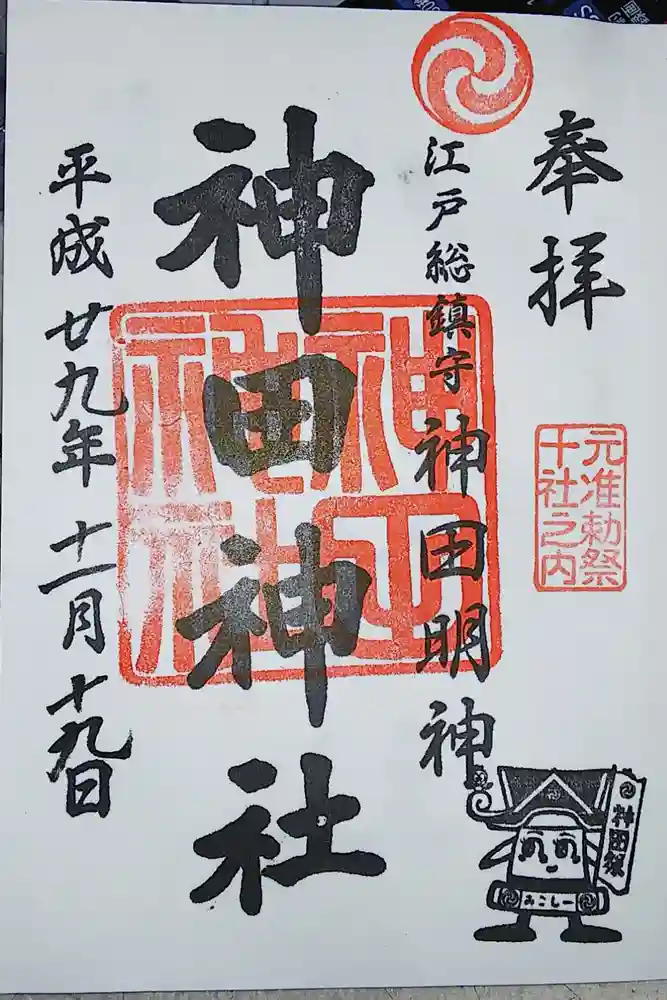 奉拝
元准勅祭
十社之内
江戸総鎮守 神田明神
神田神社
神田神社
平成廿九年 十一月 十九日
神田祭
みこしー